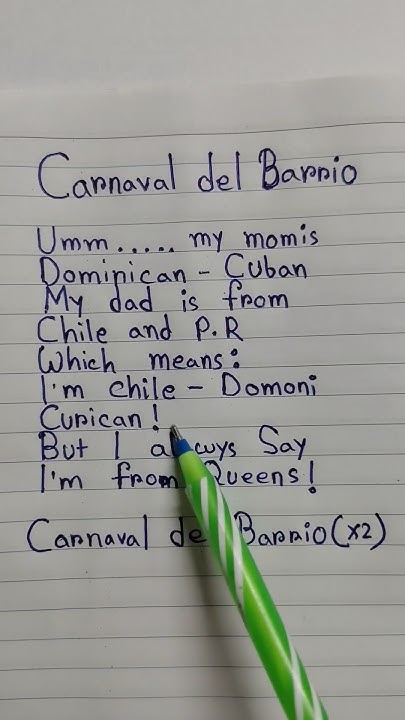 Carnaval del Barrio
Umm..... my mom is
Dominican - Cuban
My dad is from
Chile and P.R
Which means:
I'm chile - Domoni
Curican!
But I always Say
I'm from Queens!
Carnaval del Barrio (x2)